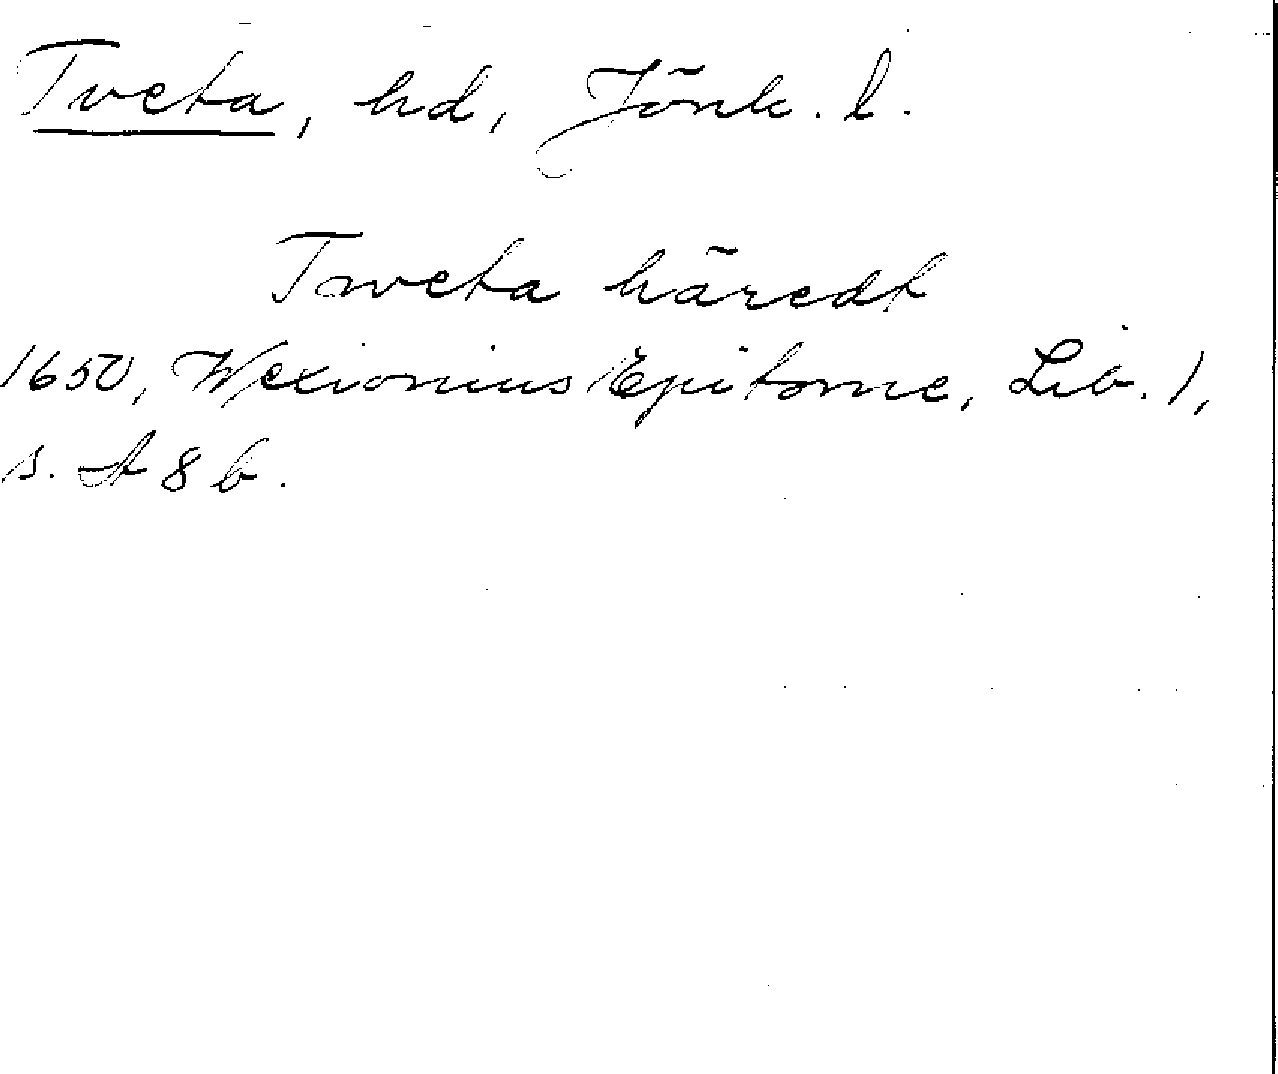 Tveta, hd, Jönk. l.
Tweta häredt
1650, Wexionius Epitome, Lib. 1,
s. A 8 b.